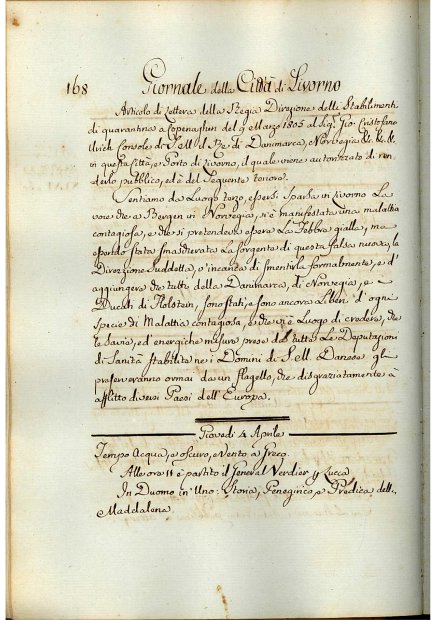 168 Giornale della Città di Livorno
Articolo di Lettera della Regia Direzione delli Stabilimenti
di quarantina a Copenaghen del 9 Marzo 1805 al Sig.r Gio: Cristofano
Ulrich Console di S. M. il Re di Danimarca, Norvegia &c. &c. &c.
in questa Città, e Porto di Livorno, il quale viene autorizzato di ren-
derlo pubblico, ed è del seguente tenore.
Sentiamo da Luogo terzo, essersi sparsa in Livorno La
voce che a Bergen in Norvegia, si è manifestata una malattia
contagiosa, e che si pretendeva essere La Febbre gialla; ma
essendo stata smascherata La sorgente di questa falsa nuova, la
Direzione suddetta, s'incarica di smentirla formalmente, e d'
aggiungere che tutto della Danimarca, di Norvegia, e
Ducati di Holstein, sono stati, e sono ancora Liberi d'ogni
specie di Malattia contagiosa, e che vi è Luogo di credere, che
le savie, ed energiche misure prese da tutte Le Deputazioni
di Sanità stabilite ne' Dominj di S. M. Danese gli
preserveranno ormai da un flagello, che disgraziatamente à
afflitto diversi Paesi dell'Europa.
Giovedì 4 Aprile
Tempo Acqua, e oscuro, e Vento a Greco.
Alle ore 11 è partito il General Verdier p Lucca
In Duomo in Uno: Storia, Penegirico, e Predica dell.
Maddalena.